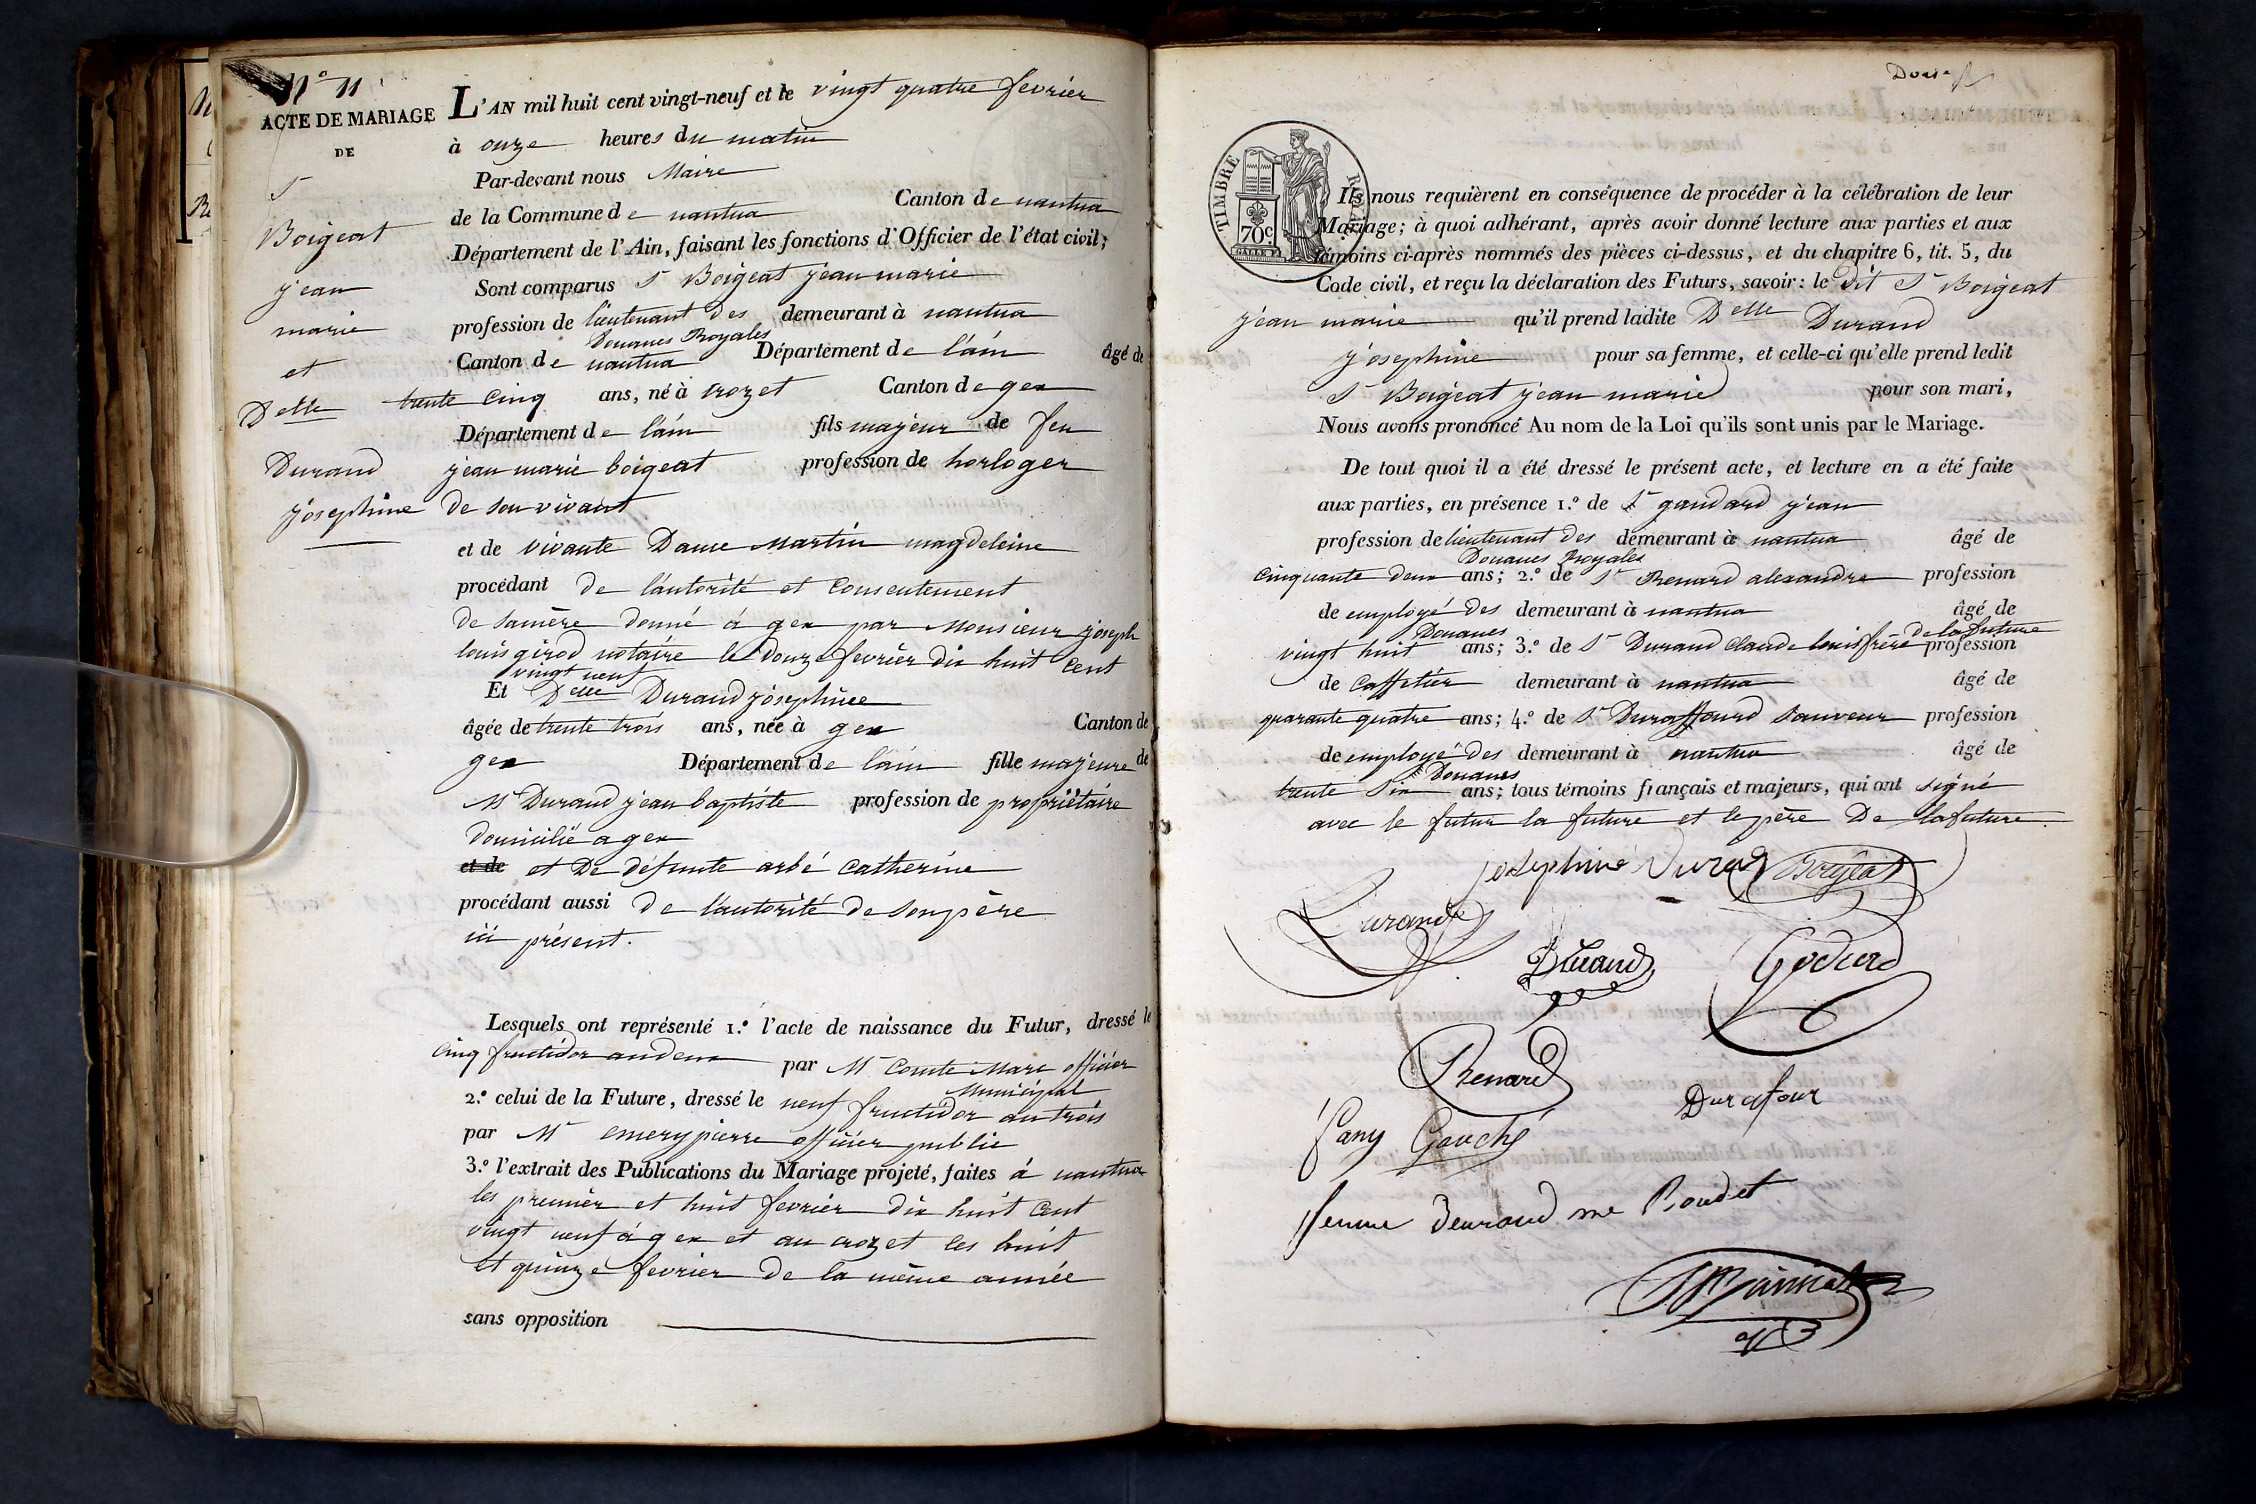 N° 11
ACTE DE MARIAGE
DE
Sr
Boigeat
jean
marie
et
Delle
Durand
josephine
L'AN mil huit cent vingt-neuf et le vingt quatre fevrier
à onze heures du matin
Par-devant nous Maire
de la Commune de nantua Canton de nantua
Département de l'Ain, faisant les fonctions d'Officier de l'état civil;
Sont comparus Sr Boigeat jean marie
profession de lieutenant des demeurant à nantua
Douanes Royales
Canton de nantua Département de l'ain âgé de
trente cinq ans, né à crozet Canton de gex
Département de l'ain fils majeur de feu
jean marie boigeat profession de horloger
de son vivant
et de vivante Dame Martin magdeleine
procédant de l'autorité et consentement
de samère donné à gex par Monsieur joseph
louis girod notaire le douze fevrier dix huit cent
vingt neuf
Et Delle Durand josephine
âgée de trente trois ans, née à gex Canton de
gex Département de l'ain fille majeure de
Mr Durand jean baptiste profession de propriétaire
domicilié a gex
et de et De défunte arbé catherine
procédant aussi de l'autorité de sonpère
ici présent.
Lesquels ont représenté 1.° l'acte de naissance du Futur, dressé le
cinq fructidor andeux par Mr Comte Marc officier
Municipal
2.° celui de la Future, dressé le neuf fructidor an trois
par Mr emery pierre officier public
3.° l'extrait des Publications du Mariage projeté, faites à nantua
les premier et huit fevrier dix huit cent
vingt neuf à gex et au crozet les huit
et quinze fevrier de la même année
sans opposition
TIMBRE ROYAL
70c
Ils nous requièrent en conséquence de procéder à la célébration de leur
Mariage; à quoi adhérant, après avoir donné lecture aux parties et aux
témoins ci-après nommés des pièces ci-dessus, et du chapitre 6, tit. 5, du
Code civil, et reçu la déclaration des Futurs, savoir: le dit Sr Boigeat
jean marie qu'il prend ladite Delle Durand
josephine pour sa femme, et celle-ci qu'elle prend ledit
Sr Boigeat jean marie pour son mari,
Nous avons prononcé Au nom de la Loi qu'ils sont unis par le Mariage.
De tout quoi il a été dressé le présent acte, et lecture en a été faite
aux parties, en présence 1.° de Sr gaudard jean
profession de lieutenant des demeurant à nantua âgé de
Douanes Royales
cinquante deux ans; 2.° de Sr Renard alexandre profession
de employé des demeurant à nantua âgé de
Douanes
vingt huit ans; 3.° de Sr Durand claude louis frère de la future profession
de caffetier demeurant à nantua âgé de
quarante quatre ans; 4.° de Sr Duraffourd Sauveur profession
de employé des demeurant à nantua âgé de
Douanes
trente Six ans; tous témoins français et majeurs, qui ont signé
avec le futur la future et le père De lafuture.
josephine Durand Boigeat
Durand
Durand
Renard
Durafour
fany Gauché
femme Deurand née Roudet